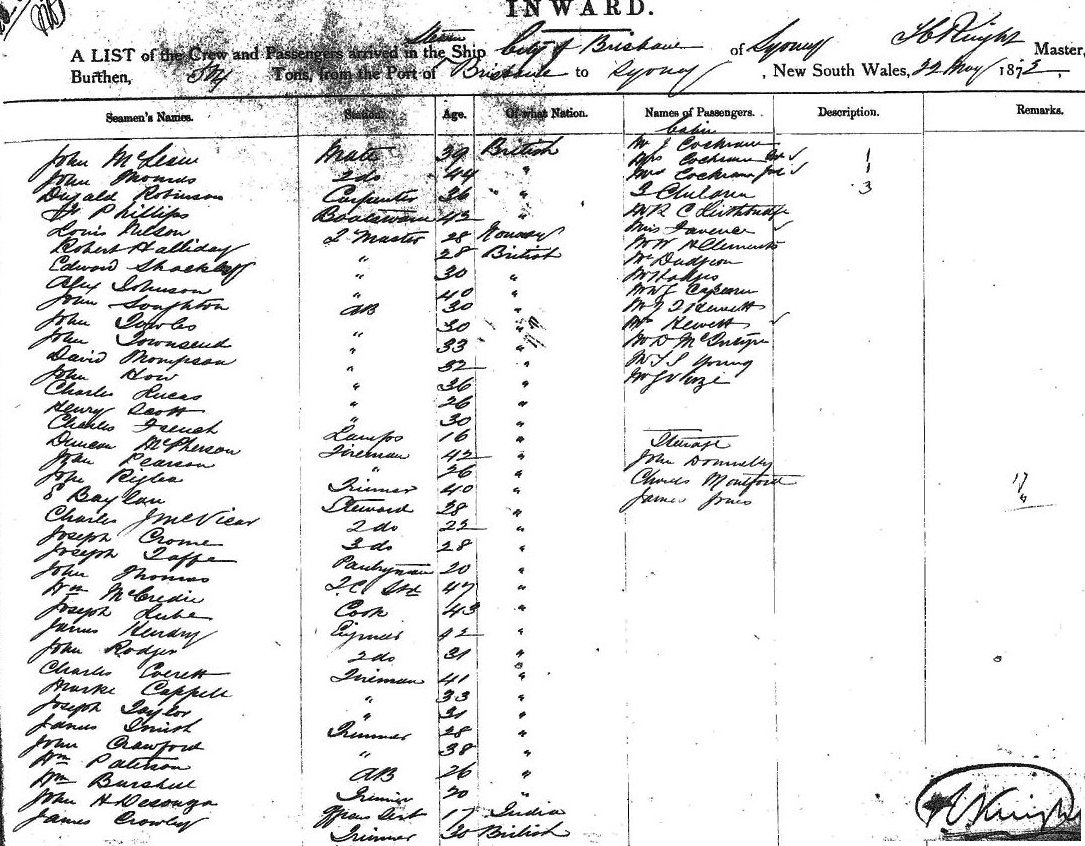 INWARD.
A LIST of the Crew and Passengers arrived in the Steam Ship City of Brisbane of Sydney H Knight Master,
Burthen, Tons, from the Port of Brisbane to Sydney, New South Wales, 22 May 1872.
Seamen's Names. Station. Age. Of what Nation. Names of Passengers. Description. Remarks.
John McLean Mate 39 British
John Thomas 2 do 44 "
Dugald Robinson Carpenter 36 "
Phillips Boatswain 42 "
Louis Nelson Q Master 28 Norway
Robert Halliday " 28 British
Edward Shackley " 30 "
Alex Johnson " 40 "
John Soughton AB 30 "
John Towles " 30 "
John Townsend " 33 "
David Thompson " 32 "
John How " 36 "
Charles Lucas " 26 "
Henry Scott " 30 "
Charles French Lamps 16 "
Duncan McPherson Fireman 42 "
John Pearson " 26 "
John Trimmer 40 "
E Baylan Steward 28 "
Charles J McVicar 2 do 22 "
Joseph Crome 3 do 28 "
Joseph Taffe Pantryman 20 "
John Thomas 47 "
Wm McCredie Cook 43 "
Joseph Engineer 42 "
James Hendry 2 do 31 "
John Rodger Fireman 41 "
Charles Everett " 33 "
Marke Cappell " 31 "
Joseph Taylor Trimmer 28 "
James Smith " 38 "
John Crawford AB 26 "
Wm Paterson Trimmer 20 "
Wm Burshell 17 India
John H Desouga Trimmer 30 British
James Crowley
Cabin
Mr J Cochrane
Mrs Cochrane 1
Mrs Cochrane 1
3 Children 3
Mr R C
Miss Favener
Mr W H Clements
Mr Dudgeon
Mr Hodges
Mr W J
Mr J T Hewett
Mrs Hewett
Mr D McIntyre
Mr T S Young
Mr J V
Steerage
John Donnelly
Charles Montford 17
James Jones "
H Knight